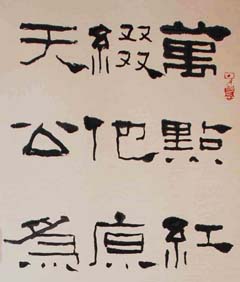 萬點紅
綴他原
天公為